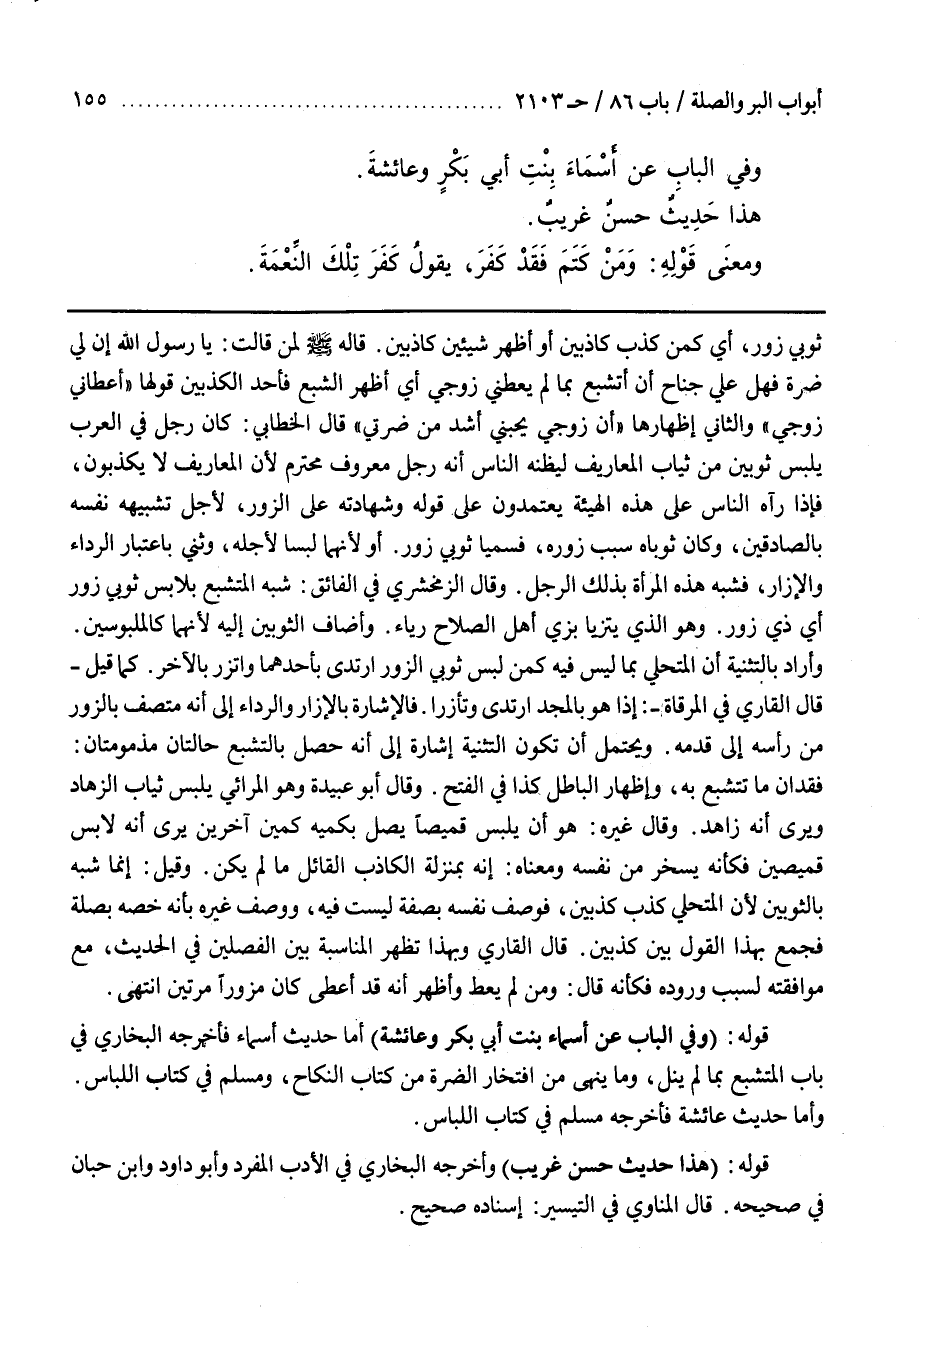 أبواب البر والصلة / باب ٨٦ / حـ ٢١٠٣ .............................................. ١٥٥
وفي البابِ عن أَسْمَاءَ بِنْتِ أبي بَكْرٍ وعائشةَ.
هذا حَدِيثٌ حسنٌ غريبٌ.
ومعنَى قَوْلِهِ: وَمَنْ كَتَمَ فَقَدْ كَفَرَ، يقولُ كَفَرَ تِلْكَ النِّعْمَةَ.
ثوبي زور، أي كمن كذب كاذبين أو أظهر شيئين كاذبين. قاله ﷺ لمن قالت: يا رسول الله إن لي
ضرة فهل علي جناح أن أتشبع بما لم يعطني زوجي أي أظهر الشبع فأحد الكذبين قولها «أعطاني
زوجي» والثاني إظهارها «أن زوجي يحبني أشد من ضرتي» قال الخطابي: كان رجل في العرب
يلبس ثوبين من ثياب المعاريف ليظنه الناس أنه رجل معروف محترم لأن المعاريف لا يكذبون،
فإذا رآه الناس على هذه الهيئة يعتمدون على قوله وشهادته على الزور، لأجل تشبيهه نفسه
بالصادقين، وكان ثوباه سبب زوره، فسميا ثوبي زور. أو لأنهما لبسا لأجله، وثني باعتبار الرداء
والإزار، فشبه هذه المرأة بذلك الرجل. وقال الزمخشري في الفائق: شبه المتشبع بلابس ثوبي زور
أي ذي زور. وهو الذي يتزيا بزي أهل الصلاح رياء. وأضاف الثوبين إليه لأنهما كالملبوسين.
وأراد بالتثنية أن المتحلي بما ليس فيه كمن لبس ثوبي الزور ارتدى بأحدهما واتزر بالآخر. كما قيل -
قال القاري في المرقاة -: إذا هو بالمجد ارتدى وتأزرا. فالإشارة بالإزار والرداء إلى أنه متصف بالزور
من رأسه إلى قدمه. ويحتمل أن تكون التثنية إشارة إلى أنه حصل بالتشبع حالتان مذمومتان:
فقدان ما تتشبع به، وإظهار الباطل كذا في الفتح. وقال أبو عبيدة وهو المرائي يلبس ثياب الزهاد
ويرى أنه زاهد. وقال غيره: هو أن يلبس قميصاً يصل بكميه كمين آخرين يرى أنه لابس
قميصين فكأنه يسخر من نفسه ومعناه: إنه بمنزلة الكاذب القائل ما لم يكن. وقيل: إنما شبه
بالثوبين لأن المتحلي كذب كذبين، فوصف نفسه بصفة ليست فيه، ووصف غيره بأنه خصه بصلة
فجمع بهذا القول بين كذبين. قال القاري وبهذا تظهر المناسبة بين الفصلين في الحديث، مع
موافقته لسبب وروده فكأنه قال: ومن لم يعط وأظهر أنه قد أعطى كان مزوراً مرتين انتهى.
قوله: (وفي الباب عن أسماء بنت أبي بكر وعائشة) أما حديث أسماء فأخرجه البخاري في
باب المتشبع بما لم ينل، وما ينهى من افتخار الضرة من كتاب النكاح، ومسلم في كتاب اللباس.
وأما حديث عائشة فأخرجه مسلم في كتاب اللباس.
قوله: (هذا حديث حسن غريب) وأخرجه البخاري في الأدب المفرد وأبو داود وابن حبان
في صحيحه. قال المناوي في التيسير: إسناده صحيح.